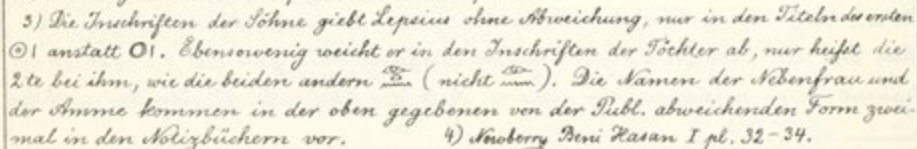 3) Die Inschriften der Söhne giebt Lepsius ohne Abweichung, nur in den Titeln des ersten
☉I anstatt OI. Ebensowenig weicht er in den Inschriften der Töchter ab, nur heißt die
2te bei ihm, wie die beiden andern (nicht ). Die Namen der Nebenfrau und
der Amme kommen in der oben gegebenen von der Publ. abweichenden Form zwei-
mal in den Notizbüchern vor. 4) Newberry Beni Hasan I pl. 32-34.